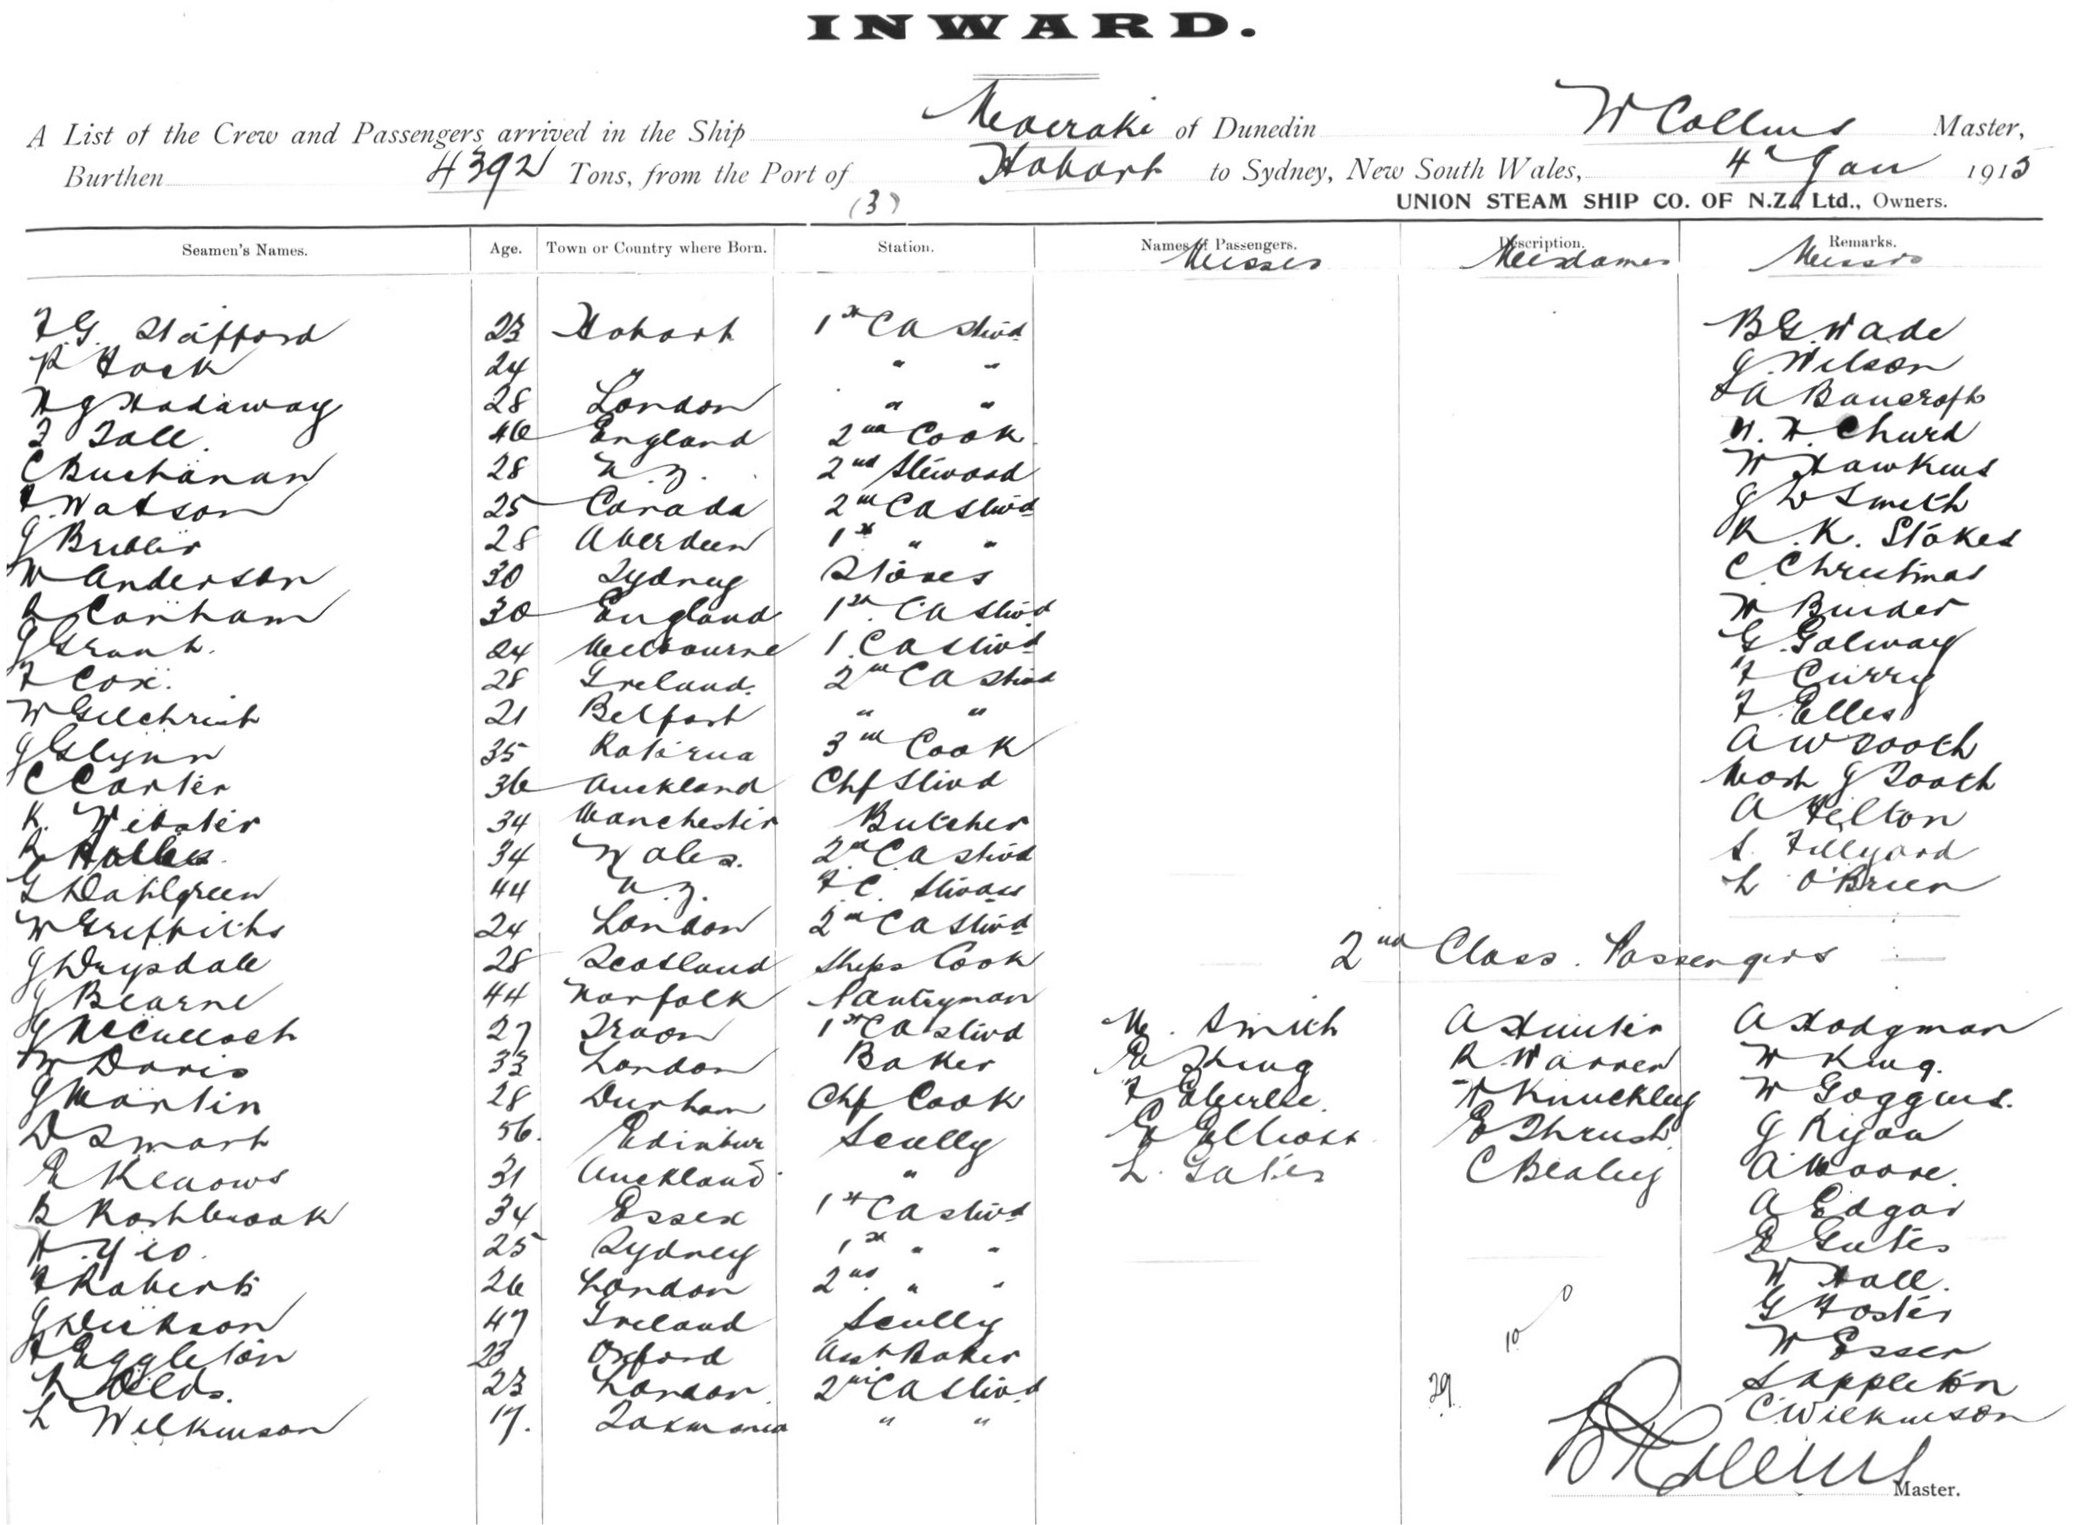 INWARD.
A List of the Crew and Passengers arrived in the Ship Moeraki of Dunedin W Collins Master,
Burthen 4392 Tons, from the Port of Hobart to Sydney, New South Wales, 4th Jan 1915
(3) UNION STEAM SHIP CO. OF N.Z., Ltd., Owners.
Seamen's Names. Age. Town or Country where Born. Station. Names of Passengers. Description. Remarks.
Misses Mesdames Messrs
F.G. Stafford 23 Hobart 1st CA Stwd B G Wade
R Hock 24 " " " J. Wilson
H J Hadaway 28 London " " A Bancroft
F Tall. 46 England 2nd Cook. H. Churd
C Buchanan 28 N.Z. 2nd Steward W Hawkins
F. Watson 25 Canada 2nd CA Stwd G W Smith
J 28 Aberdeen 1st " " R. K. Stokes
W Anderson 30 Sydney Stores C. Christmas
R Canham 30 England 1st CA Stwd W Binder
J Grant. 24 Melbourne 1 CA Stwd G. Galway
F Cox. 28 Ireland. 2nd CA Stwd F Curry
W Gilchrist 21 Belfast " " F. Elles
J Glynn 35 Rotorua 3rd Cook A W Tooth
C Carter 36 Auckland Chf Stwd Mast J Tooth
K. Webster 34 Manchester Butcher A Hilton
R 34 Wales. 2nd CA Stwd S. Fillyard
G Dahlgreen 44 N.Z. F.C. L O'Brien
W Griffiths 24 London 2nd CA Stwd
2nd Class. Passengers
J Drysdale 28 Scotland Ships Cook
J Bearne 44 Norfolk Pantryman
J McCulloch 27 Troon 1st CA Stwd M. Smith A Hunter A Hodgman
W Davis 33 London Baker E Thing R Warren W King.
J Martin 28 Durham Chf Cook F Eberle. H Knuckley W Goggins.
D Smart 56. Edinbur Scully E Elliott E Thrush J Ryan
E Kenows 31 Auckland. " L. Gates C Bealey A Moore.
B Rashbrook 34 Essex 1st CA Stwd A Edgar
H. Yeo. 25 Sydney 1st " " E Gates
F Roberts 26 London 2nd " " W Hall.
J Dickson 47 Ireland Scully G Foster
F Eggleton 23 Oxford Asst Baker 10 0 W Esser
R Olds. 23 London. 2nd CA Stwd 29 S Appleton
L Wilkinson 17. Tasmania " " C. Wilkinson
W Collins
Master.